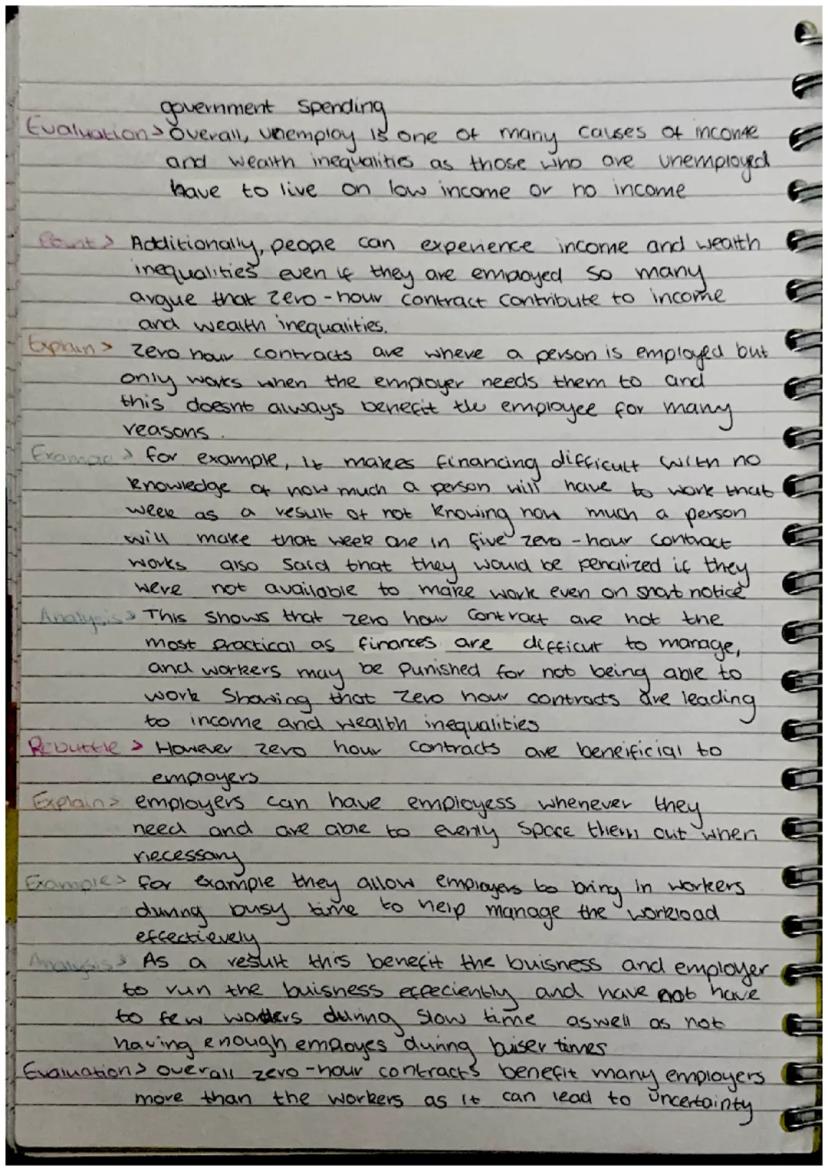 government spending
Evaluation > Overall, unemploy is one of many causes of income
and wealth inequalities as those who are unemployed
have to live on low income or no income
Point > Additionally, peope can experience income and wealth
inequalities even if they are empoyed so many
argue that zero-hour contract contribute to income
and wealth inequalities.
Explain > Zero hour contracts are where a person is employed but
only works when the employer needs them to and
this doesnt always benefit the employee for many
reasons.
Example > for example, it makes financing difficult with no
knowledge of how much a person will have to work that
week as a result of not knowing how much a person
will make that week one in five zero-hour contract
works also said that they would be penalized if they
were not available to make work even on short notice
Analysis > This shows that zero hour contract are not the
most practical as finances are difficut to manage,
and workers may be punished for not being able to
work showing that zero hour contracts are leading
to income and wealth inequalities
Rebuttle > However zero hour contracts are beneificial to
employers
Explain > employers can have employess whenever they
need and are able to evenly space them out when
necessary
Example > for example they allow employers to bring in workers
during busy time to help manage the workload
effectievely
Analysis > As a result this benefit the buisness and employer
to run the buisness effeciently and have not have
to few workers during slow time aswell as not
having enough empoyes during buiser times
Evaluation > overall zero-hour contracts benefit many employers
more than the workers as it can lead to uncertainty